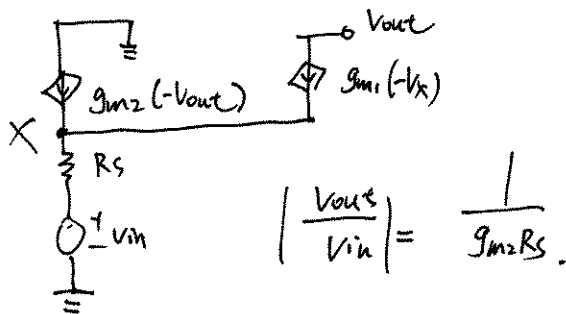 Vout
gm2(-Vout)
gm1(-Vx)
X
Rs
+
- Vin
|Vout/Vin| = 1/gm2Rs.